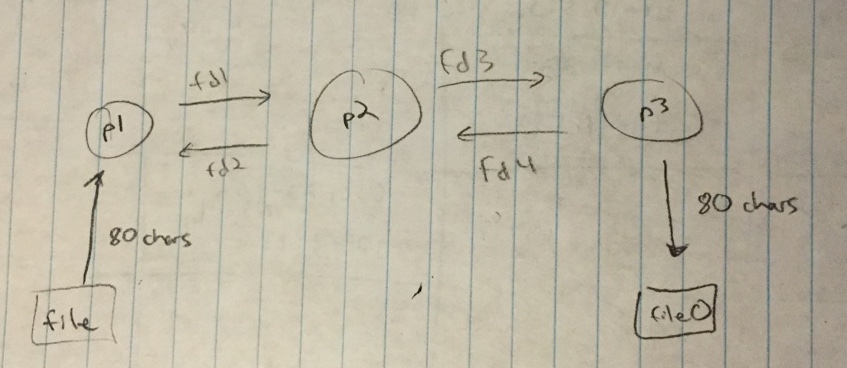 fd1
fd3
p1
p2
p3
fd2
fd4
80 chars
80 chars
file
fileO